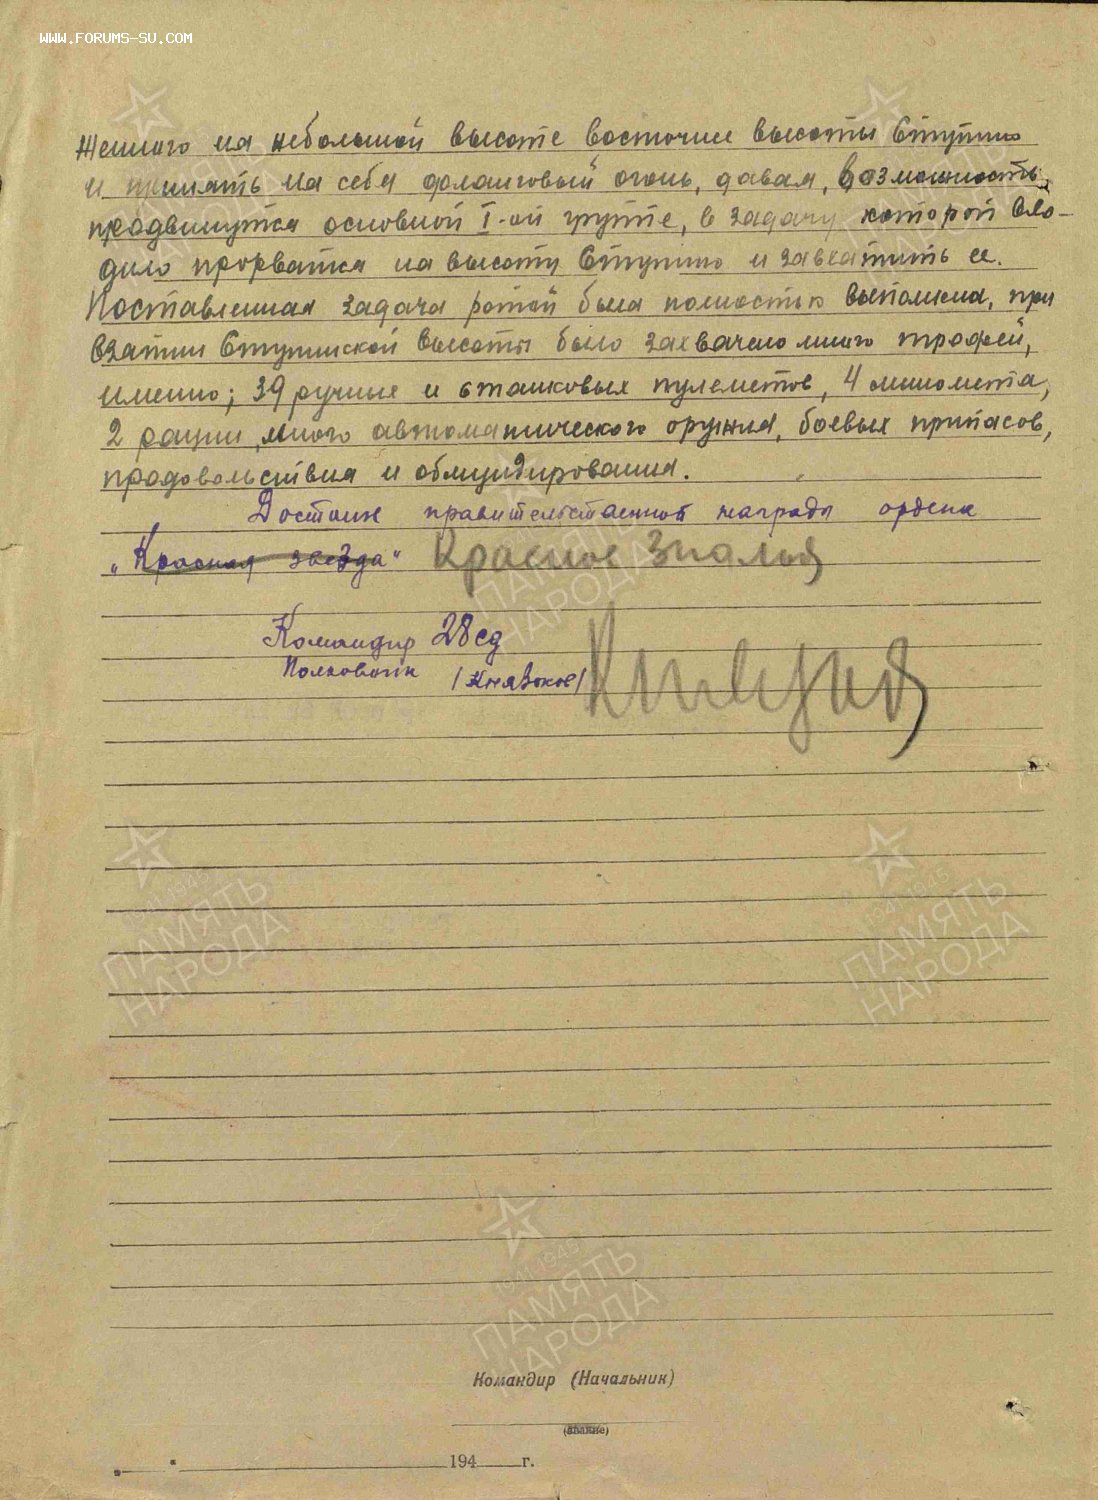 WWW.FORUMS-SU.COM
женного на небольшой высоте восточнее высоты Ступино
и принять на себя фланговый огонь, давая, возможность
продвинутся основной I-ой группе, в задачу которой вхо-
дило прорватся на высоту Ступино и завхатить ее.
Поставленная задача ротой была полностью выполнена, при
взятии Ступинской высоты было захвачено много трофей,
именно; 39 ручных и станковых пулеметов, 4 миномета,
2 рации, много автоматического оружия, боевых припасов,
продовольствия и обмундирования.
Достоин правительственной награды ордена
"Красная звезда" Красное Знамя
Командир 28 сд
Полковник (Князьков)
1941 1945
ПАМЯТЬ
НАРОДА
Командир (Начальник)
(звание)
194 г.